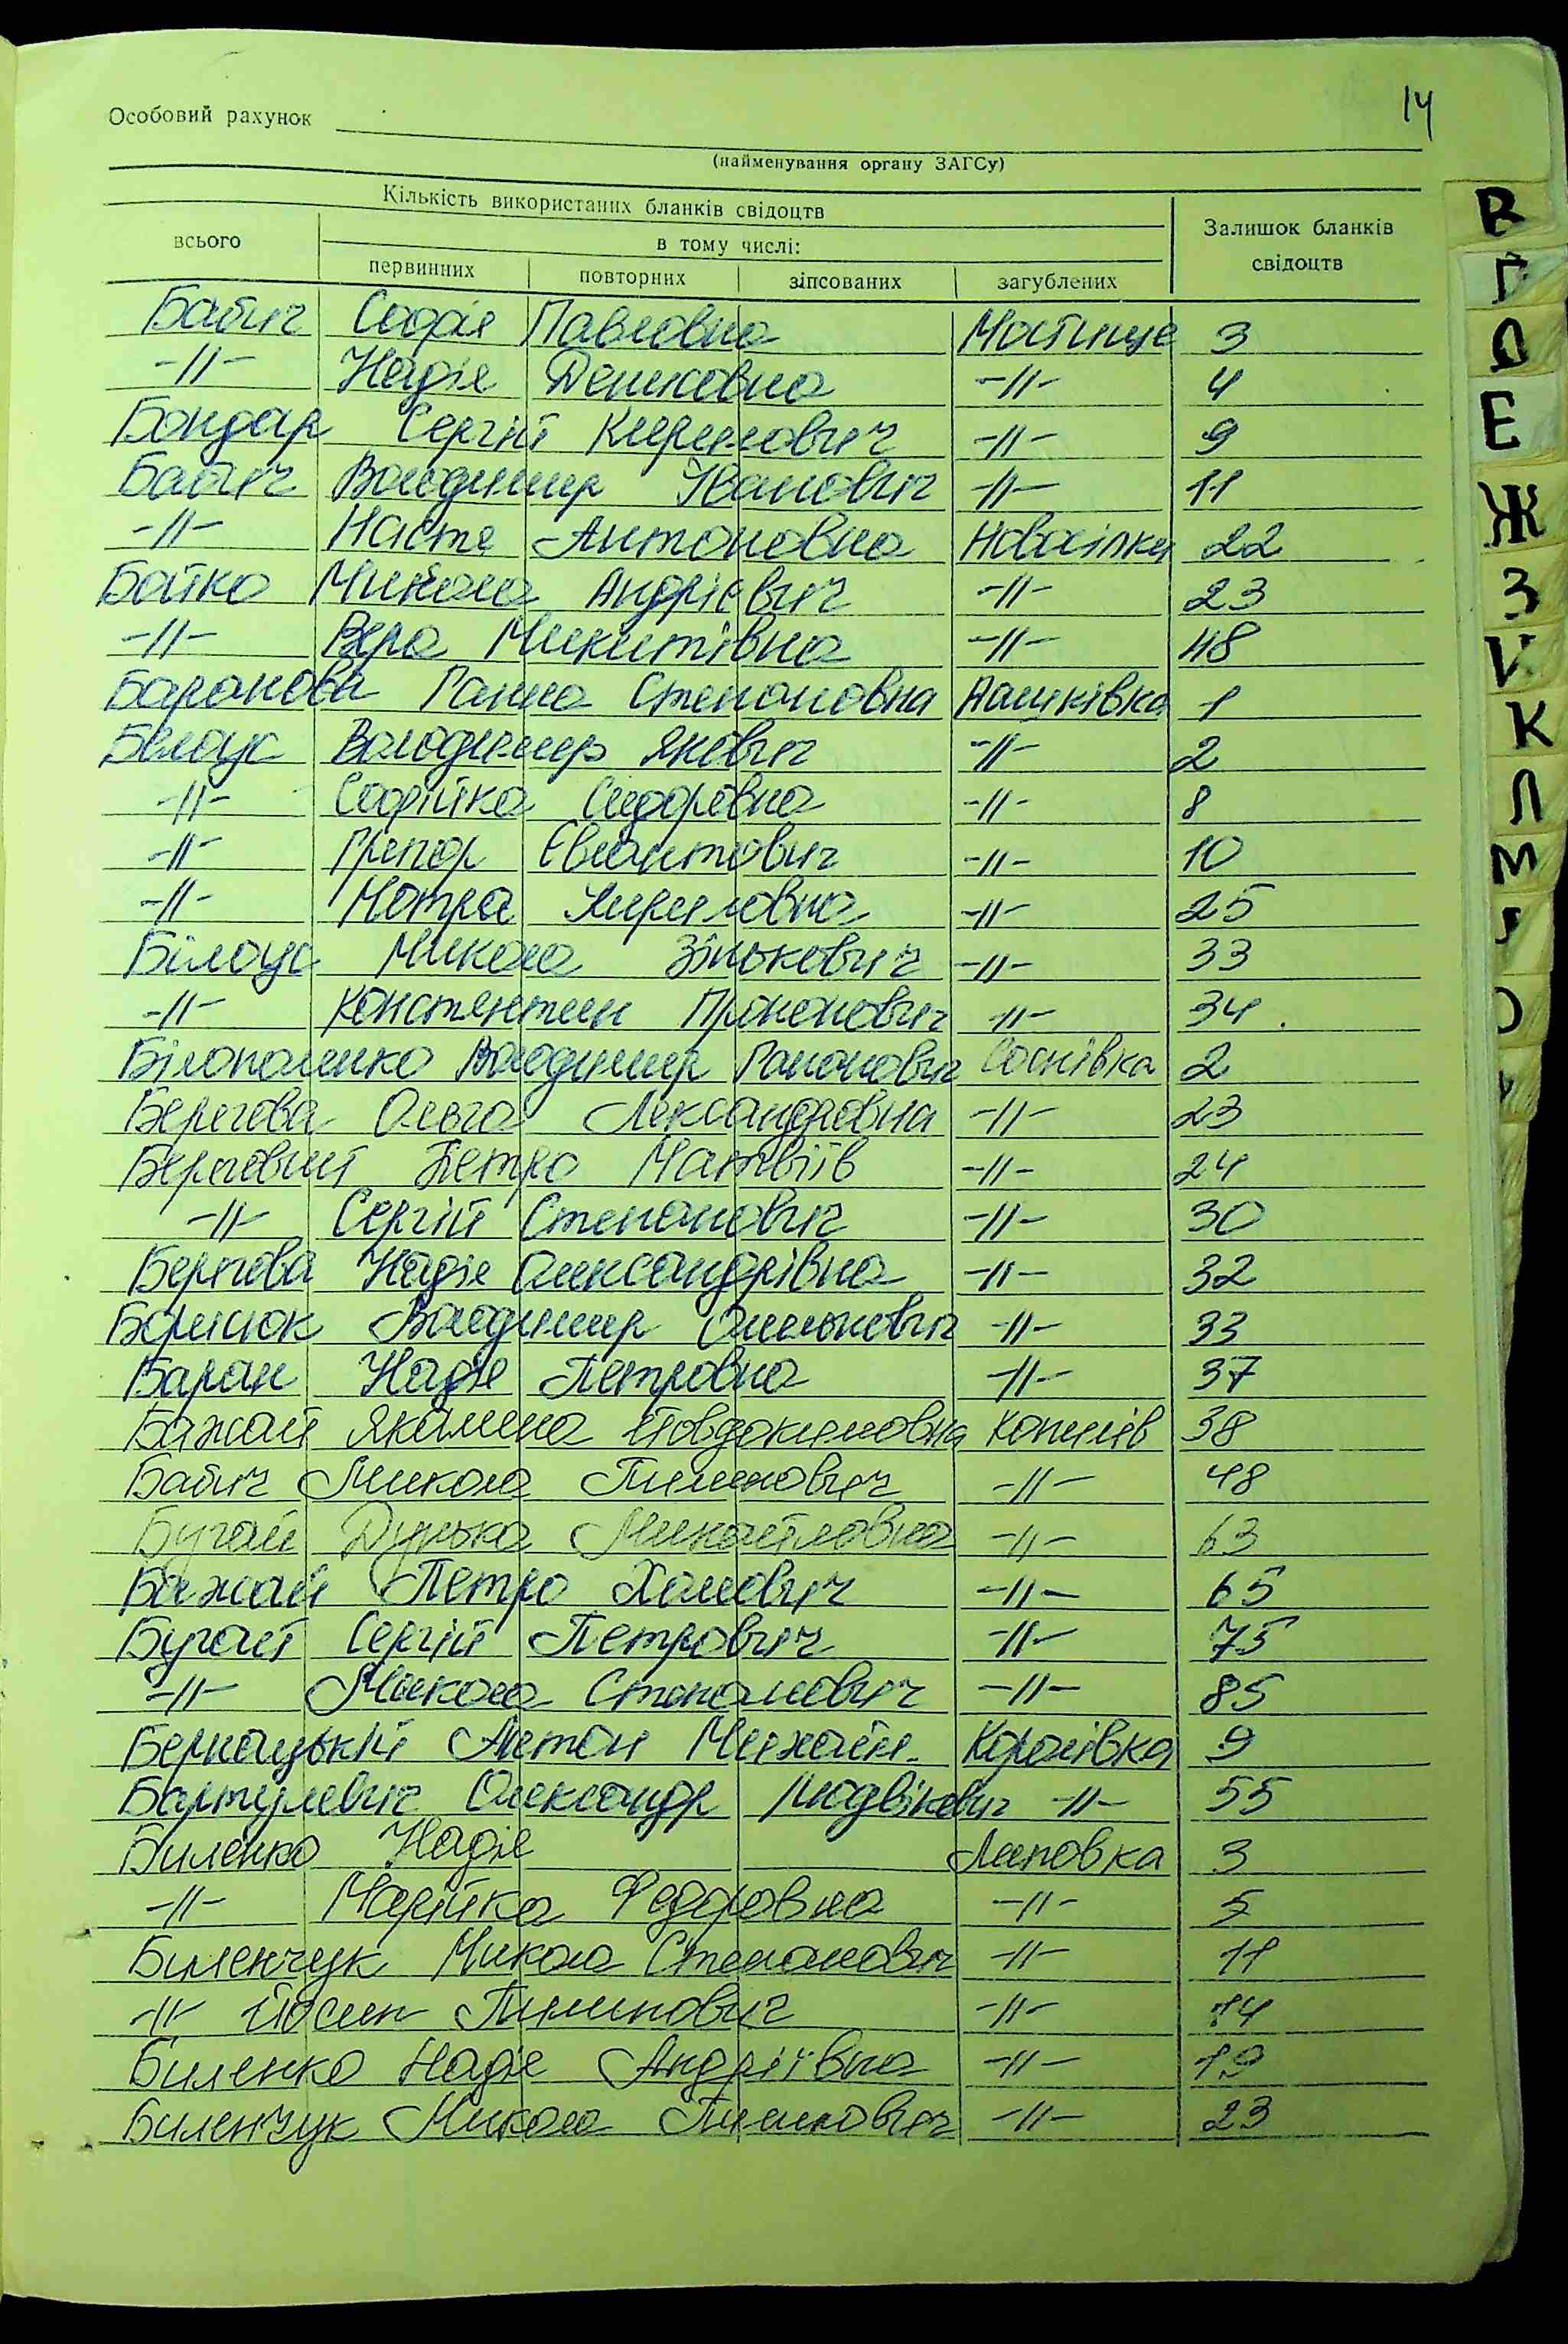 14
Особовий рахунок
(найменування органу ЗАГСу)
Кількість використаних бланків свідоцтв
всього
в тому числі:
первинних повторних зіпсованих загублених
Залишок бланків свідоцтв
Бабич Софія Павловна Мостище 3
-//- Надія Денисовна -//- 4
Бондар Сергій Кирилович -//- 9
Бабич Володимир Іванович -//- 11
-//- Настя Антоновна Новосілки 22
Бойко Микола Андрієвич -//- 23
-//- Вера Микитівна -//- 48
Баранова Ганна Степановна 1
Білоус Володимир Якович -//- 2
-//- Софійка Сидоровна -//- 8
-//- Грегор -//- 10
-//- Мотря Кириловна -//- 25
Білоус Микола Зінькович -//- 33
-//- Константин -//- 34
Володимир Соснівка 2
Берегова Ольга Лександровна -//- 23
Береговий Петро Матвіїв -//- 24
-//- Сергій Степанович -//- 30
Берегова Надія Олександрівна -//- 32
Борисюк Володимир -//- 33
Баран Надія Петровна -//- 37
Бажай Якилина Йовдокимовна Копилів 38
Бабич Микола Пилипович -//- 48
Бугай Дунька Михайловна -//- 63
Бажай Петро -//- 65
Бугай Сергій Петрович -//- 75
-//- Микола Степанович -//- 85
Бернацький Антон Михайл. Королівка 9
Олександр Людвікович -//- 55
Биленко Надія Липовка 3
-//- Марійка Федоровна -//- 5
Биленчук Микола Степанович -//- 11
-//- Йосип Пилипович -//- 14
Биленко Надія Андріївна -//- 19
Биленчук Микола Пилипович -//- 23
В
Г
Д
Е
Ж
З
И
К
Л
М